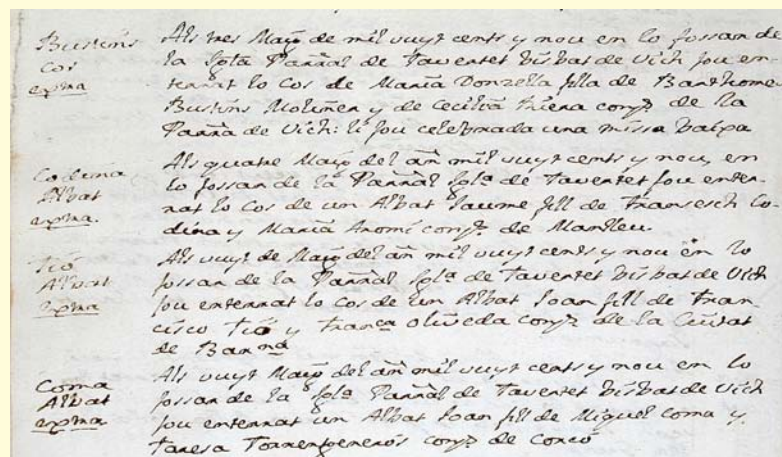 Bustins
Cos
extra
Als tres Maig de mil vuyt cents y nou en lo fossar de
la Igla Parral de Tavertet bisbat de Vich fou en-
terrat lo Cos de Maria Donzella filla de Barthomeu
Bustins Moliner y de Cecilia Riera conjs de la
Parra de Vich: li fou celebrada una missa baixa
Codina
Albat
extra.
Als quatre Maig del añ mil vuyt cents y nou, en
lo fossar de la Parral Igla de Tavertet fou enter-
rat lo Cos de un Albat Jaume fill de Fransesch Co-
dina y Maria conjs de Manlleu.
Tió
Albat
extra
Als vuyt de Maig del añ mil vuyt cents y nou en lo
fossar de la Parral Igla de Tavertet bisbat de Vich
fou enterrat lo Cos de un Albat Joan fill de Fran-
cisco Tió y Franca Oliveda conjs de la Ciutat
de Barna
Coma
Albat
extra
Als vuyt Maig del añ mil vuyt cents y nou en lo
fossar de la Igla Parral de Tavertet bisbat de Vich
fou enterrat un Albat Joan fill de Miquel Coma y
Taresa Torrentgenerós conjs de Corcó